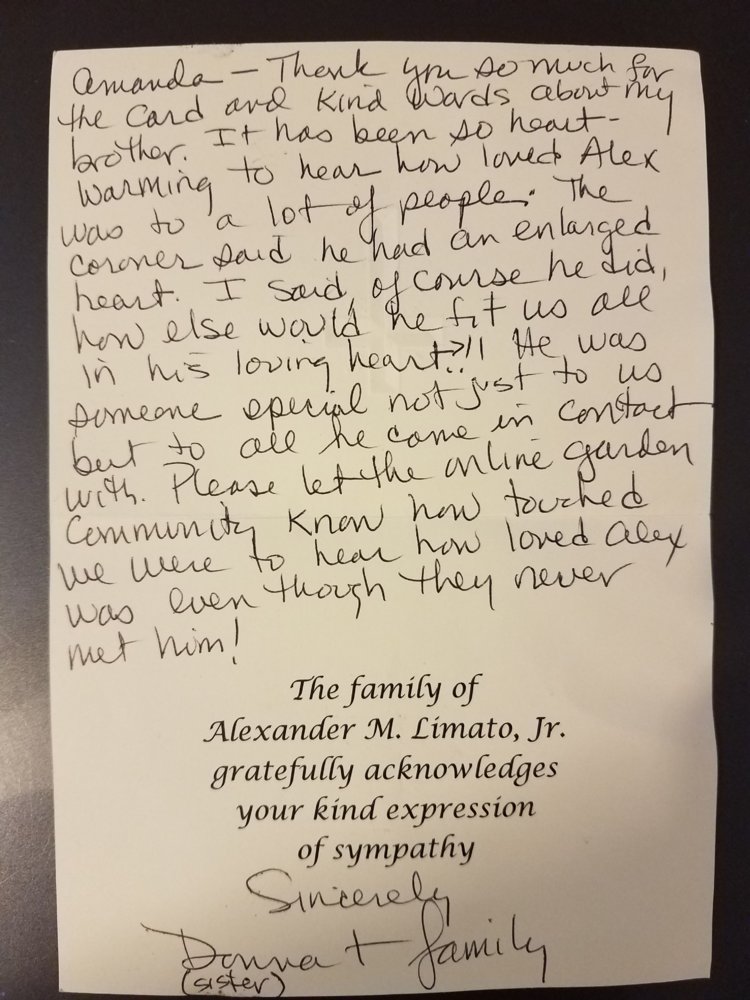 Amanda — Thank you so much for
the card and kind words about my
brother. It has been so heart-
warming to hear how loved Alex
was to a lot of people. The
coroner said he had an enlarged
heart. I said, of course he did,
how else would he fit us all
in his loving heart?!! He was
someone special not just to us
but to all he came in contact
with. Please let the online garden
community know how touched
we were to hear how loved Alex
was even though they never
met him!
The family of
Alexander M. Limato, Jr.
gratefully acknowledges
your kind expression
of sympathy
Sincerely
Donna + family
(sister)